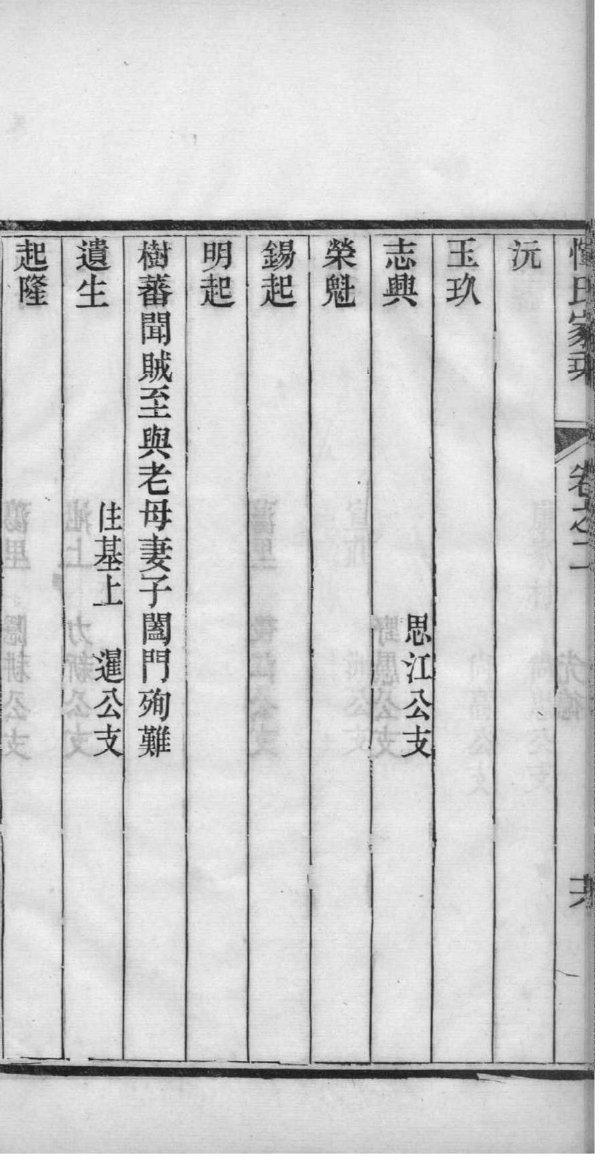 惲氏家乘 卷之二
沅
玉玖
志興 思江公支
榮魁
錫起
明起
樹蕃聞賊至與老母妻子闔門殉難
遺生 住基上 暹公支
起隆